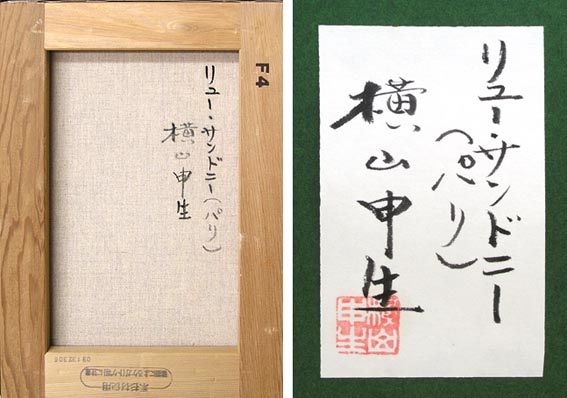 リュー・サンドニー(パリ)
横山申生
F4
リュー・サンドニー
(パリ)
横山申生